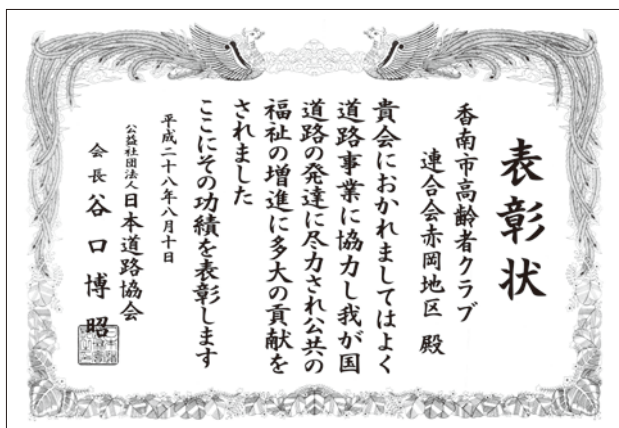 表彰状
香南市高齢者クラブ
連合会赤岡地区 殿
貴会におかれましてはよく
道路事業に協力し我が国
道路の発達に尽力され公共の
福祉の増進に多大の貢献を
されました
ここにその功績を表彰します
平成二十八年八月十日
公益社団法人日本道路協会
会長 谷口博昭